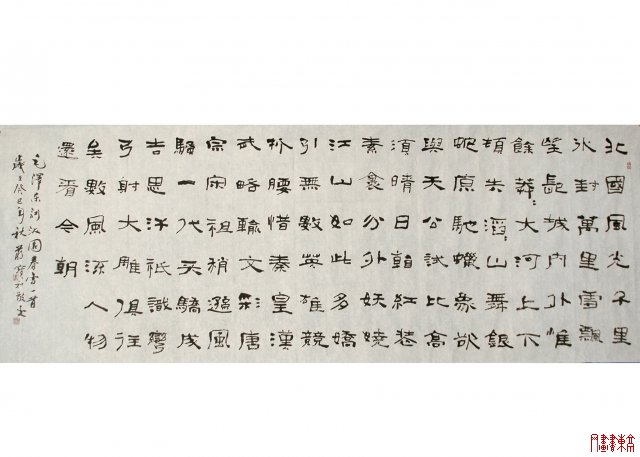 北國風光千里
冰封萬里雪飄
望長城內外惟
餘莽〻大河上下
頓失滔〻山舞銀
蛇原馳蠟象欲
與天公試比高
須晴日看紅裝
素裹分外妖嬈
江山如此多嬌
引無數英雄競
折腰惜秦皇漢
武略輸文彩唐
宗宋祖稍遜風
騷一代天驕成
吉思汗祇識彎
弓射大雕俱往
矣數風流人物
還看今朝
毛澤東詞沁園春雪一首
歲在癸巳年秋